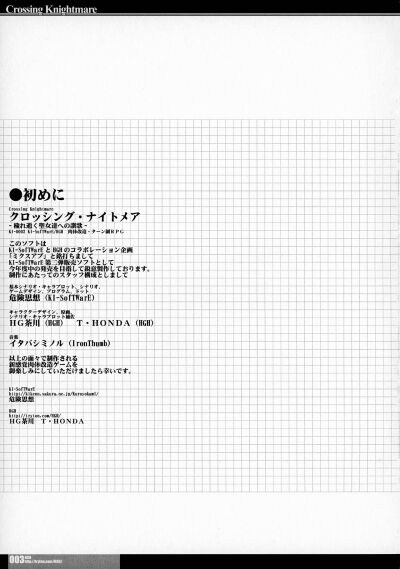 Crossing Knightmare
●初めに
Crossing Knightmare
クロッシング・ナイトメア
- 穢れ逝く聖女達への讃歌 -
KI-0002 KI-SofTWarE/HGH 肉体改造・ターン制RPG
このソフトは
KI-SofTWarEとHGHのコラボレーション企画
「ミクスアブ」と銘打ちまして
KI-SofTWarE第二弾販売ソフトとして
今年度中の発売を目指して鋭意製作しております。
制作にあたってのスタッフ構成としまして
基本シナリオ・キャラプロット、シナリオ、
ゲームデザイン、プログラム、ドット
危険思想 (KI-SofTWarE)
キャラクターデザイン、原画、
シナリオ・キャラプロット補佐
HG茶川 (HGH) T・HONDA (HGH)
音楽
イタバシミノル (IronThumb)
以上の面々で制作される
新感覚肉体改造ゲームを
御楽しみにしていただけましたら幸いです。
KI-SofTWarE
危険思想
HGH
http://iryion.com/HGH/
HG茶川 T・HONDA
003